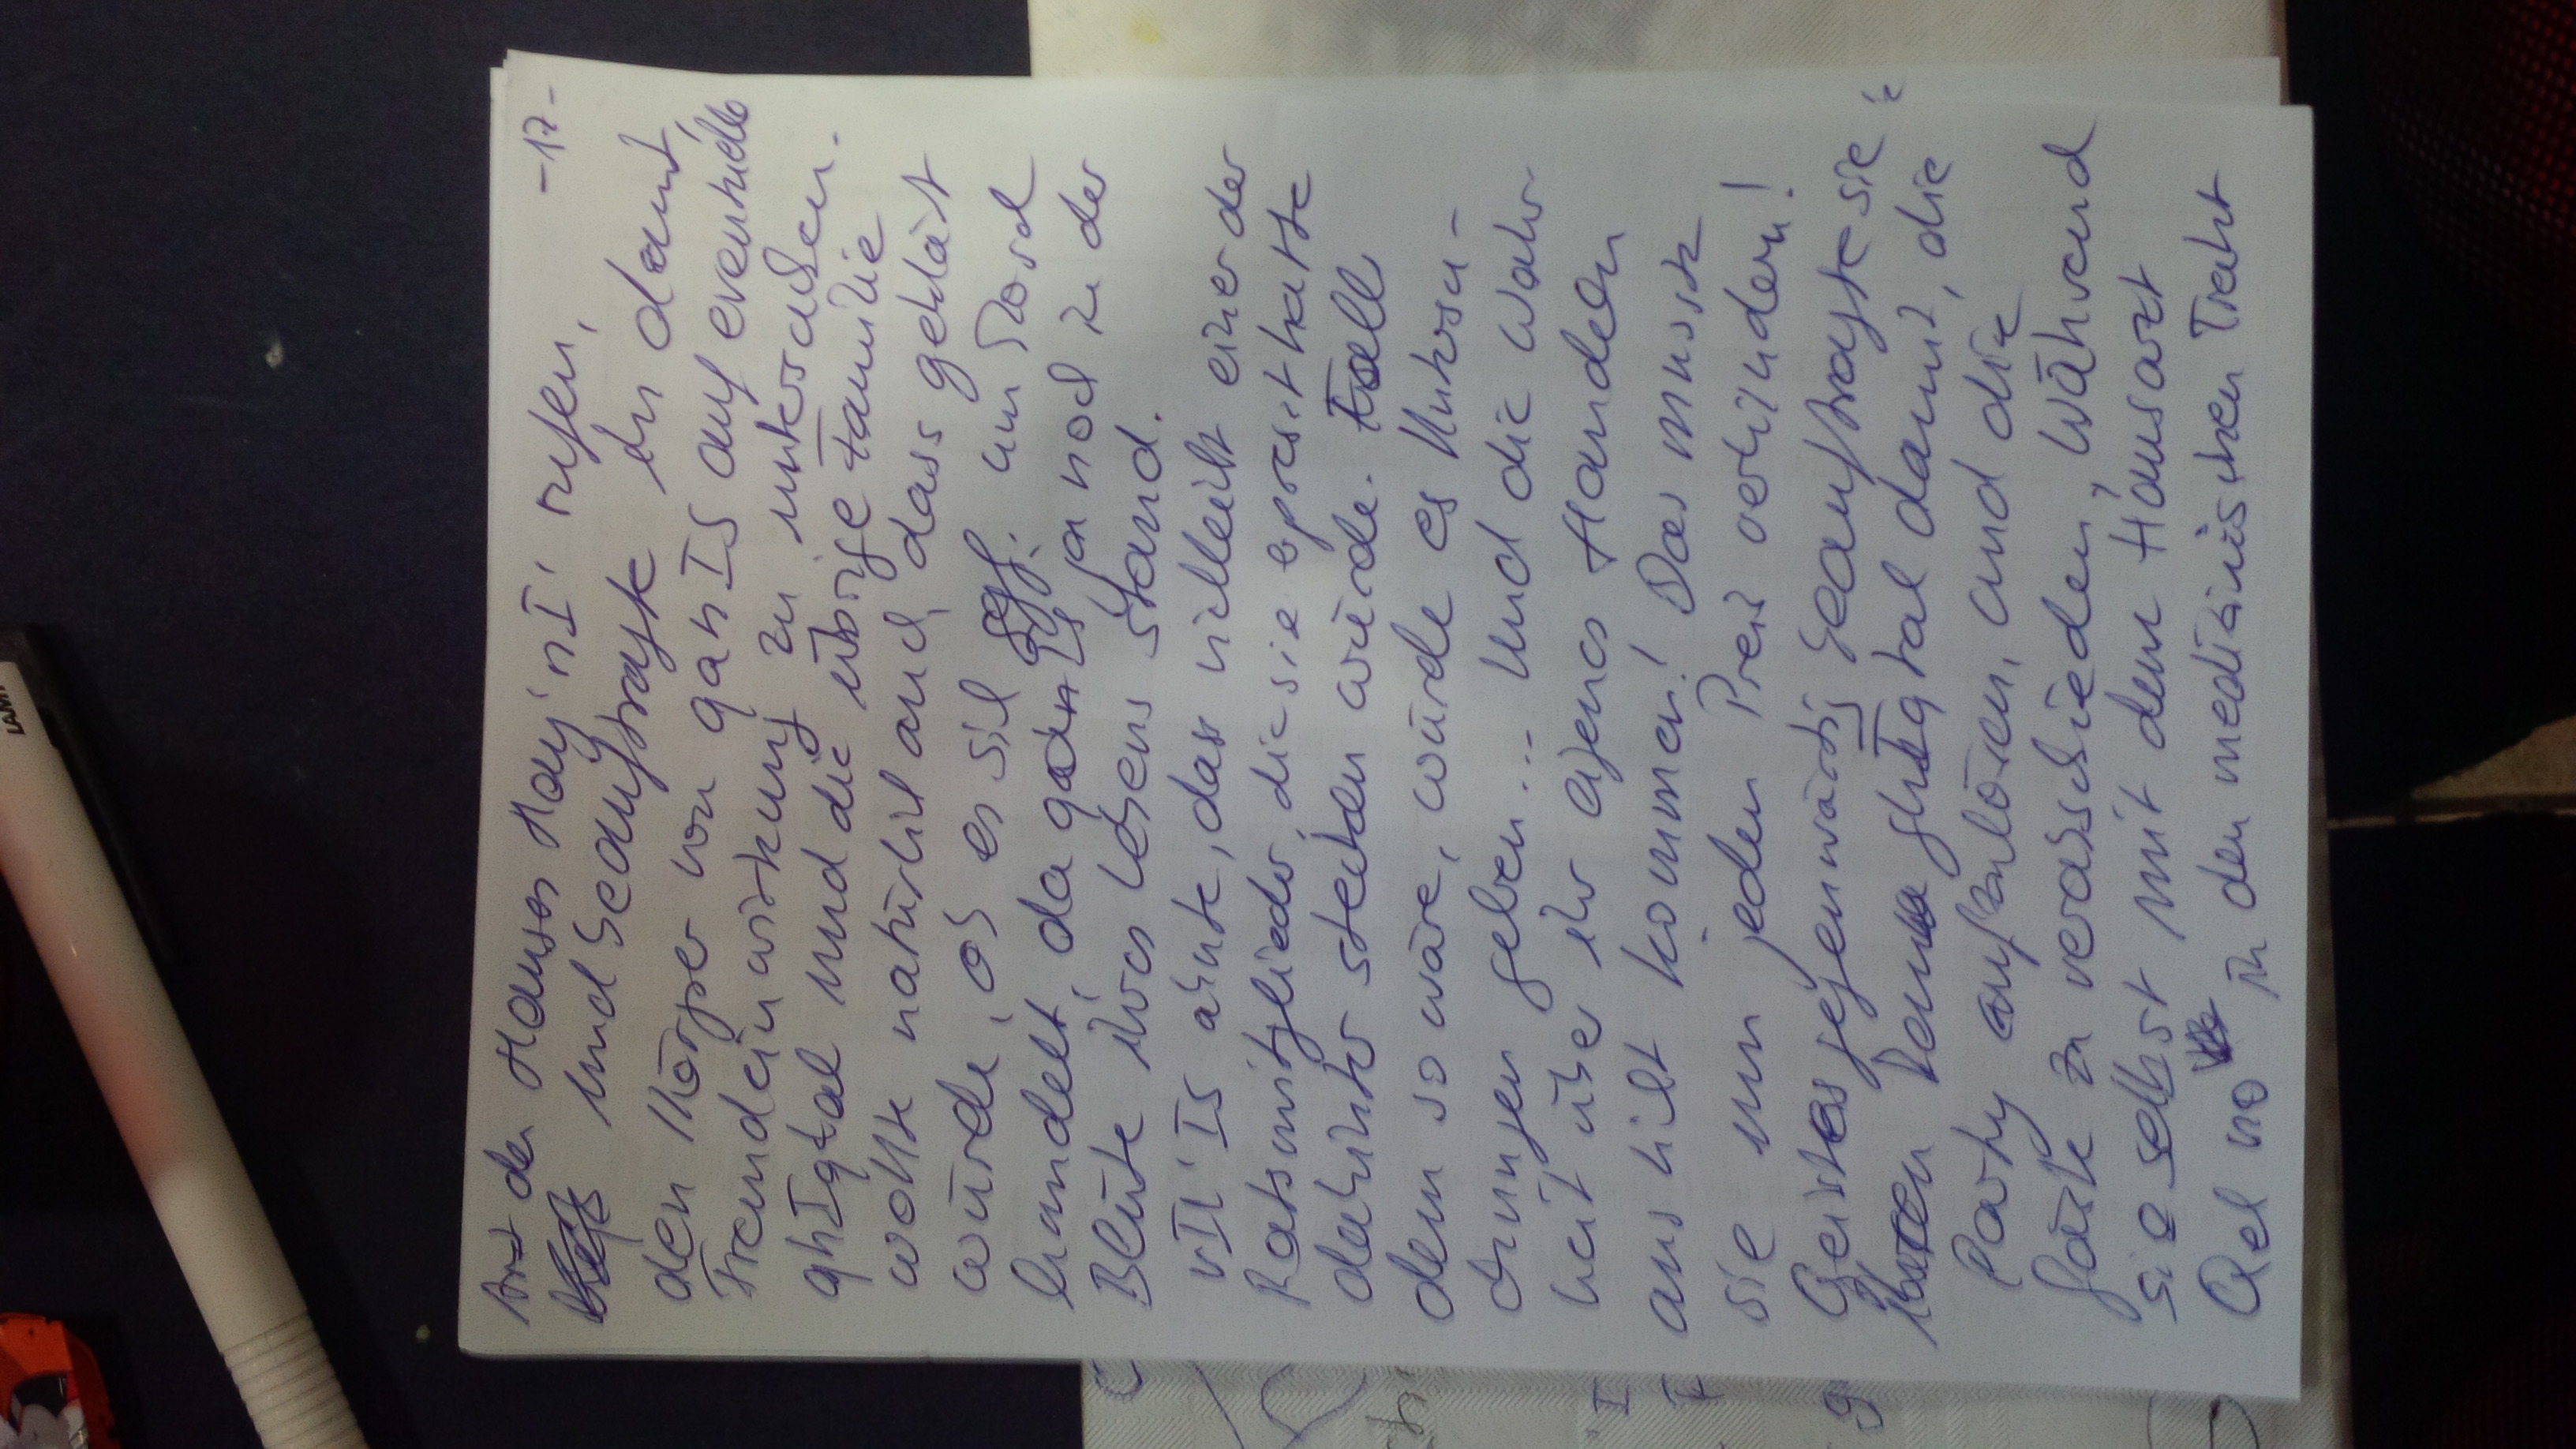 -17-
Arzt des Hauses Hay'nI' rufen,
und beauftragte ihn damit,
den Körper von qanIS auf eventuelle
Fremdeinwirkung zu untersuchen.
ghIqtal und die übrige Familie
wollte natürlich auch, dass geklärt
würde, ob es sich ggf. um Mord
handelt, da qanIS ja noch in der
Blüte ihres Lebens stand.
vIl'IS ahnte, dass vielleicht einer der
Ratsmitglieder, die sie erpresst hatte
dahinter stecken würde. Falls
dem so wäre, würde es Untersu-
chungen geben... Und die Wahr-
heit über ihr eigenes Handeln
ans Licht kommen! Das musste
sie um jeden Preis verhindern!
Geistesgegenwärtig beauftragte sie
ghIqtal damit, die
Party aufzulösen, und die
Gäste zu verabschieden, während
sie selbst mit dem Hausarzt
in den medizinischen Trakt
LAMY